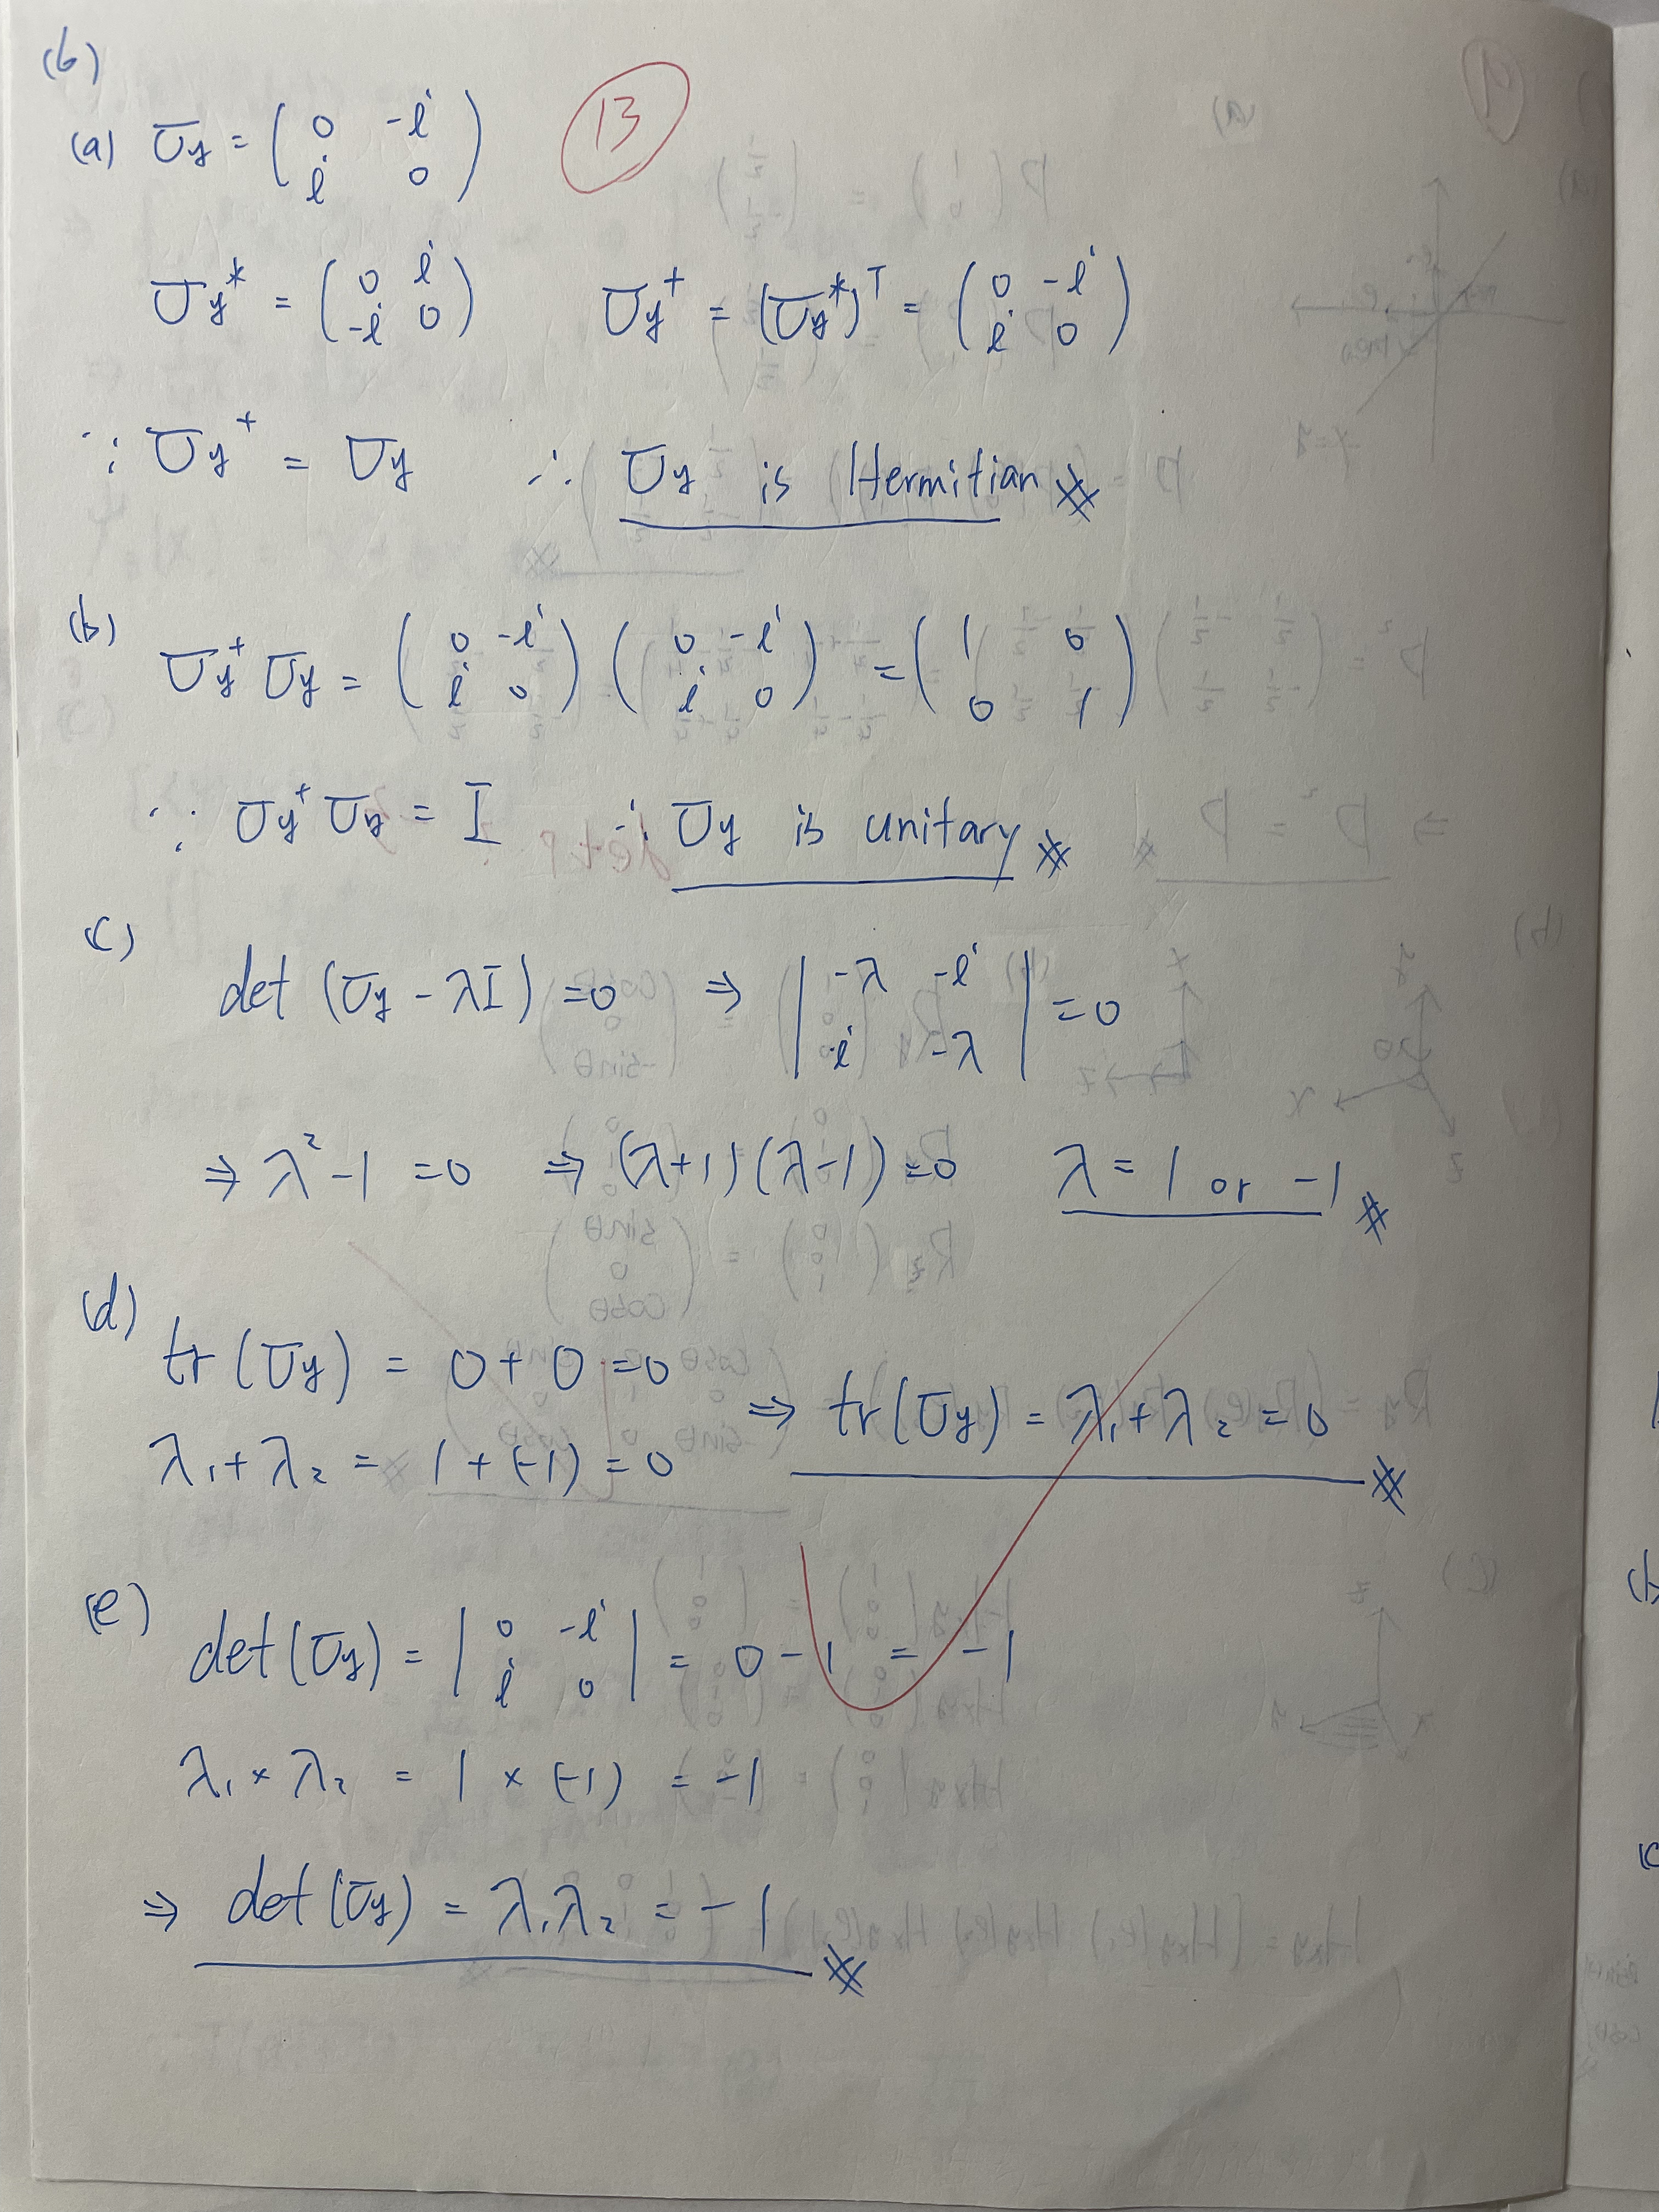 (6)
13
(a) σy = ( 0 -i ; i 0 )
σy* = ( 0 i ; -i 0 ) σy⁺ = (σy*)ᵀ = ( 0 -i ; i 0 )
∵ σy⁺ = σy ∴ σy is Hermitian
(b) σy⁺ σy = ( 0 -i ; i 0 ) ( 0 -i ; i 0 ) = ( 1 0 ; 0 1 )
∵ σy⁺ σy = I ∴ σy is unitary
(c)
det (σy - λI) = 0 ⇒ | -λ -i ; i -λ | = 0
⇒ λ² - 1 = 0 ⇒ (λ+1)(λ-1) = 0 λ = 1 or -1
(d) tr (σy) = 0 + 0 = 0
λ₁ + λ₂ = 1 + (-1) = 0 ⇒ tr(σy) = λ₁ + λ₂ = 0
(e) det(σy) = | 0 -i ; i 0 | = 0 - 1 = -1
λ₁ × λ₂ = 1 × (-1) = -1
⇒ det(σy) = λ₁λ₂ = -1